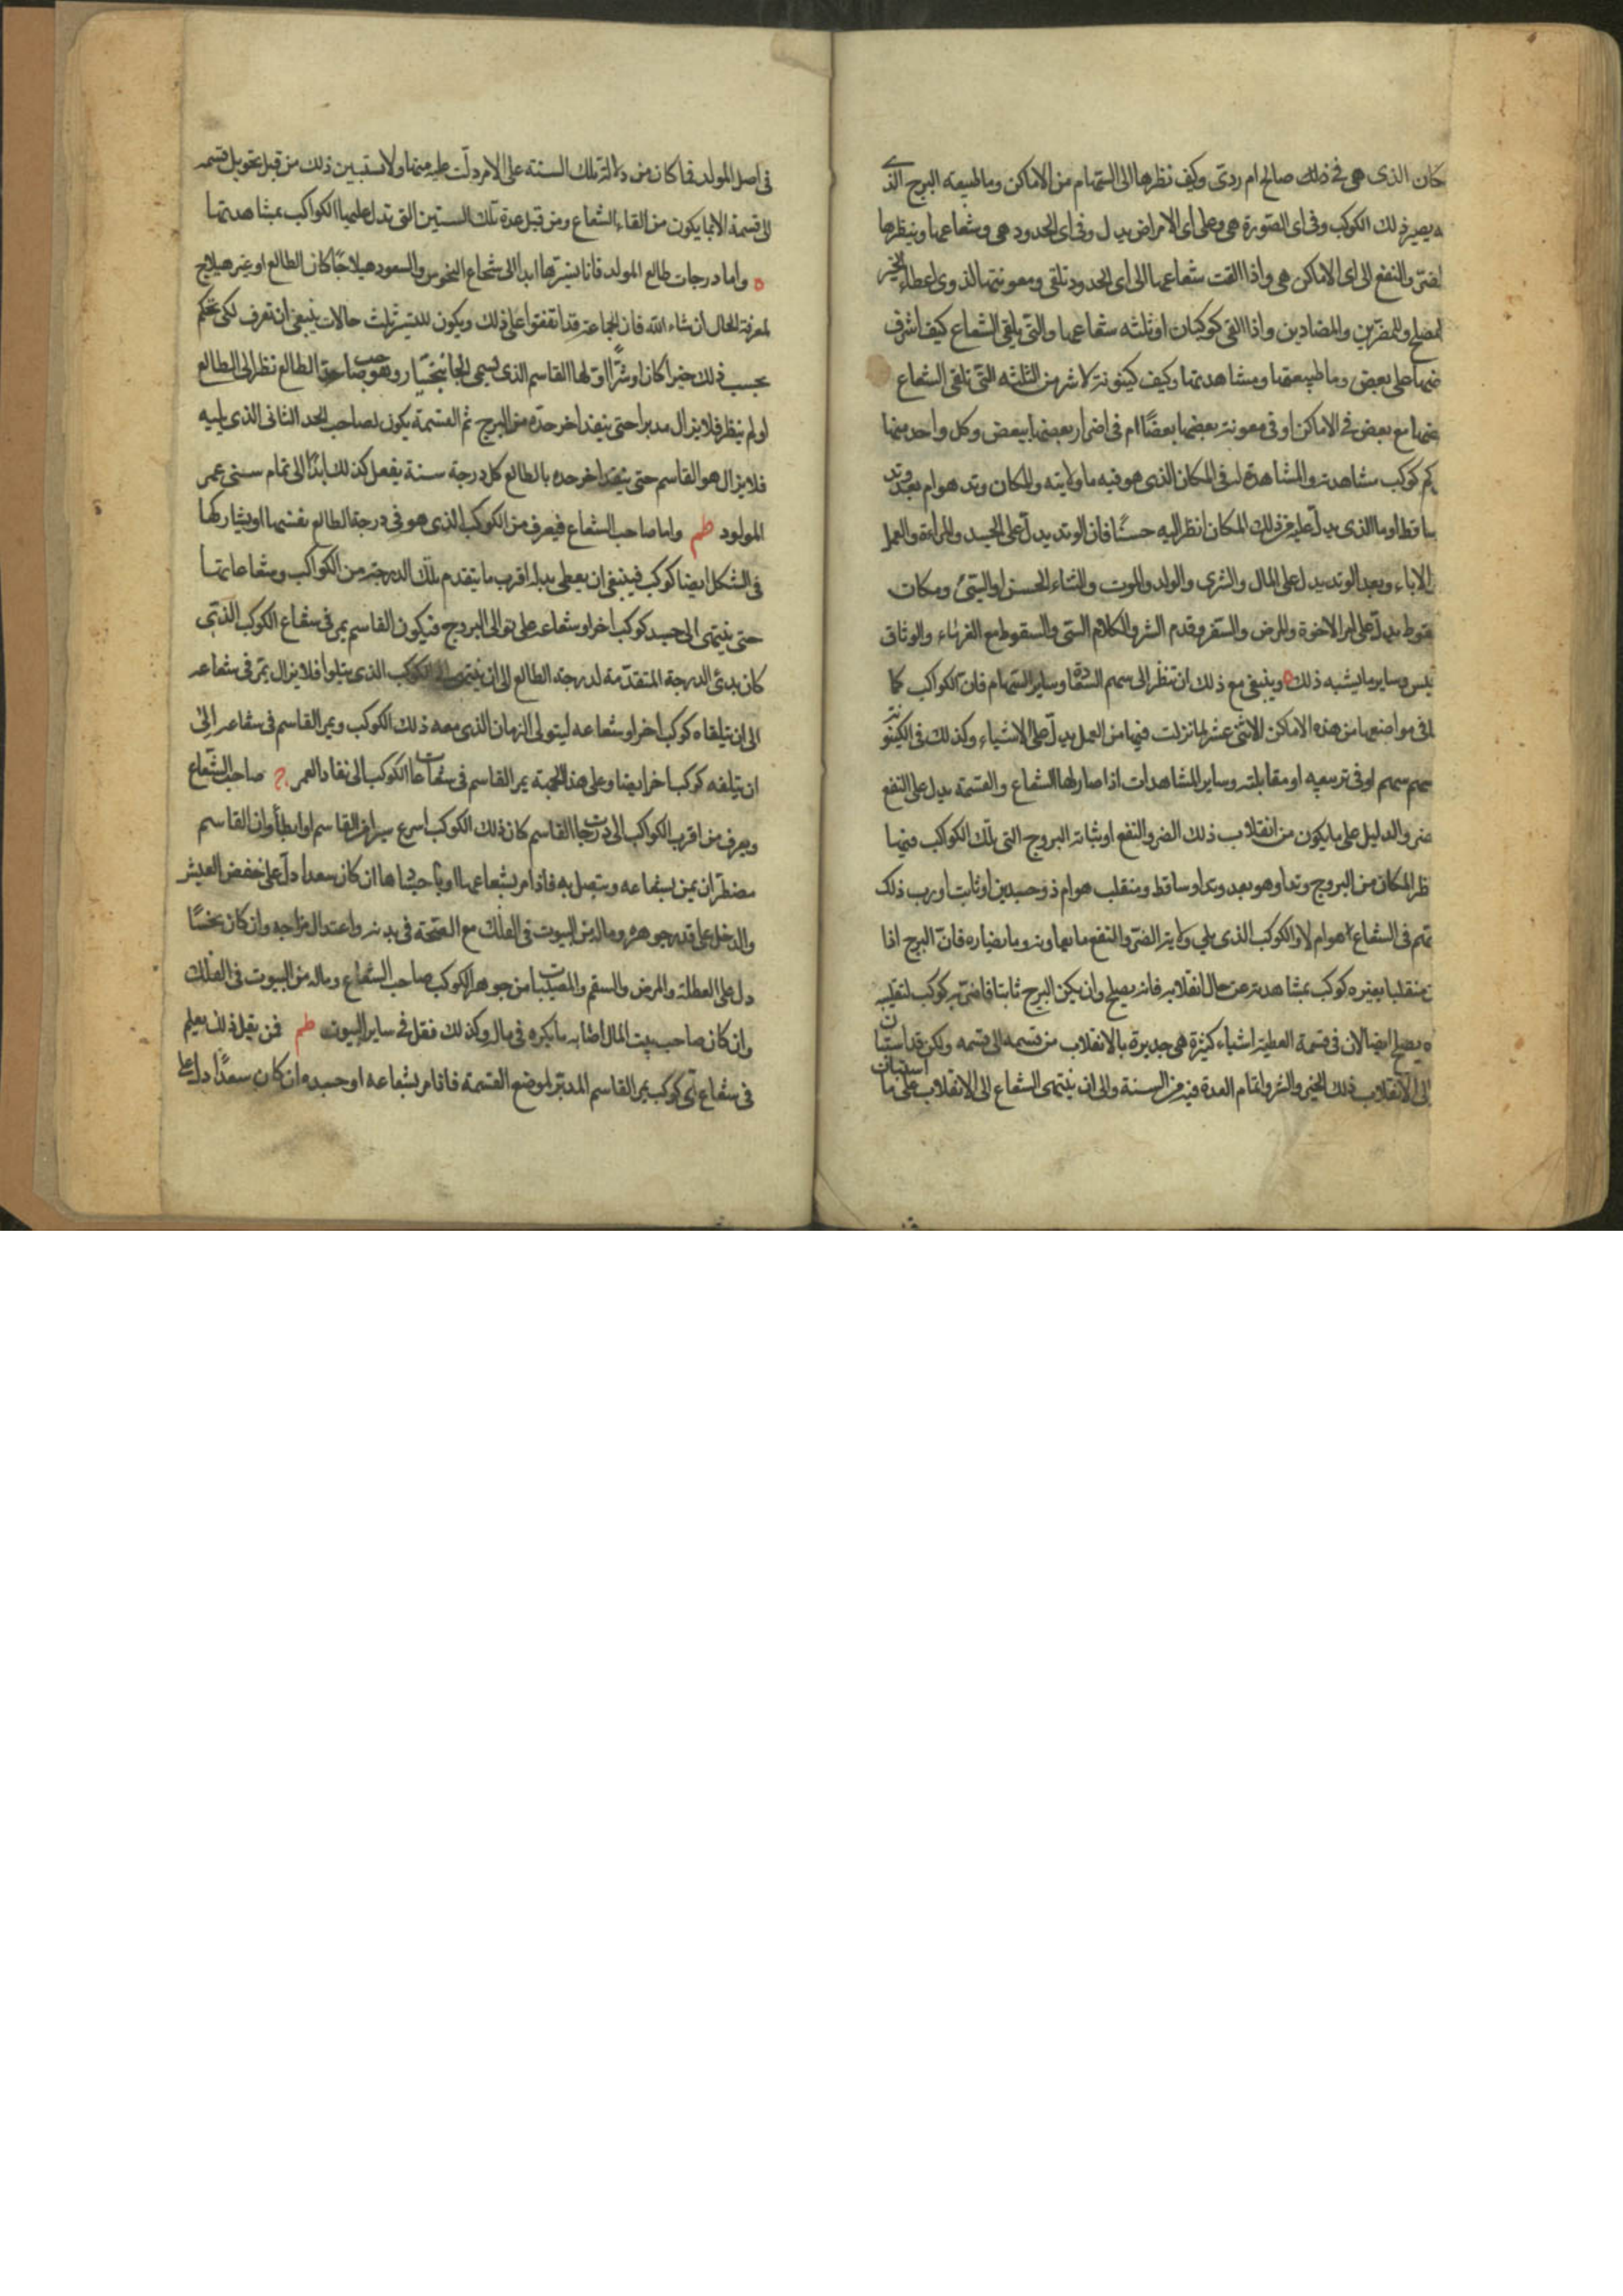 كان الذى هى فى ذلك صالح ام ردئ وكيف نظرها الى السهام من الاماكن وما طبيعه البرج الذى
يصير ذلك الكوكب وفى اى الصورة هى وعلى اى الامراض يدل وفى اى الحدود هى وشعاعها وبنظرها
الضر والنفع الى اى الاماكن هى واذا القت شعاعها الى اى الحدود تلقى ومعونتها الذوى اعطاء الخير
المصلح والمضرين والمضادين واذا القى كوكبان او ثلثه شعاعها والتى يلقى الشعاع كيف اشرف
على بعض وما طبيعتها ومشاهدتها وكيف كينونة من الثلثه التى تلقى الشعاع
مع بعض فى الاماكن او فى معونة بعضها بعضًا ام فى اضرار بعضها ببعض وكل واحد منها
كم كوكب مشاهدته والمشاهدة له فى المكان الذى هو فيه ما ولايته والمكان وتد هو ام بعد وتد
ساقط او ما الذى يدل عليه من ذلك المكان انظر اليه حسنًا فان الوتد يدل على الجسد والمراءة والعمل
والاباء وبعد الوتد يدل على المال والشرى والولد والموت والثناء الحسن او السئ ومكان
يدل على امر الاخوة والمرض والسفر وقدم الشر والكلام السئ والسقوط مع الغرباء والوثاق
وساير ما يشبه ذلك ٥ وينبغى مع ذلك ان تنظر الى سهم السعادة وساير السهام فان الكواكب كما
فى مواضعها من هذه الاماكن الاثنى عشر لما نزلت فيها من العمل يدل على الاشياء وكذلك فى الكينونة
سهم سهم او فى تربيعه او مقابلته وساير المشاهدات اذا صار لها الشعاع والقسمة يدل على النفع
والدليل على ما يكون من انقلاب ذلك الضر والنفع او ثباته البروج التى تلك الكواكب فيها
المكان من البروج وتد او هو بعد وتد او ساقط ومنقلب هو ام ذو جسدين او ثابت او رب ذلك
فى الشعاع هو ام لا والكوكب الذى يلى ولاية الضر والنفع ما يعاونه وما يضاره فان البرج اذا
منقلبا بغيره كوكب بمشاهدته عن حال انقلابه فانه يصلح وان يكن البرج ثابتا فاضر به كوكب لتقلبه
يصلح ايضا لان فى قسمة العطية اشياء كثيرة هى جديرة بالانقلاب من قسمه الى قسمه ولكن قد استبان
الى الانقلاب ذلك الخير والشر واتمام العدة فيه من السنة والى ان ينتهى الشعاع الى الانقلاب على ما
استبان
فى اصل المولد فما كان من دلالة تلك السنته على الامر دلت عليه منها ولا يستبين ذلك من قبل تحويل قسمه
الى قسمة الا بما يكون من القاء الشعاع ومن قبل عدة تلك السنين التى تدل عليها الكواكب بمشاهدتها
٥ واما درجات طالع المولد فانا نسيرها ابدا الى شعاع النحوس والسعود هيلاجًا كان الطالع او غير هيلاج
لمعرفة الحال ان شاء الله فان الجماعة قد اتفقوا على ذلك ويكون للتسيير ثلث حالات ينبغى ان تعرف لكى تحكم
بحسب ذلك خيرا كان او شرًا اولها القاسم الذى يسمى الجانبختار وهو صاحب حد الطالع نظر الى الطالع
او لم ينظر فلا يزال مدبرا حتى ينفد اخر حده من البرج ثم القسمة يكون لصاحب الحد الثانى الذى يليه
فلا يزال هو القاسم حتى ينفد اخر حده بالطالع كل درجة سنة يفعل كذلك ابدًا الى تمام سنى عمر
المولود واما صاحب الشعاع فيعرف من الكوكب الذى هو فى درجة الطالع نفسها او يشاركها
فى الشكل ايضا كوكب فينبغى ان يعطى بدله اقرب ما يتقدم تلك الدرجة من الكواكب وشعاعاتها
حتى ينتهى الى جسد كوكب اخر او شعاعه على توالى البروج فيكون القاسم يمر فى شعاع الكوكب الذى
كان بدئ الدرجة المتقدمة لدرجة الطالع الى ان ينتهى الى الكوكب الذى يتلوا فلا يزال يمر فى شعاعه
الى ان يتلقاه كوكب اخر او شعاعه ليتولى الزمان الذى معه ذلك الكوكب ويمر القاسم فى شعاعه الى
ان يتلقه كوكبا خر ايضا وعلى هذا الجهة يمر القاسم فى شعاعات الكوكب الى نفاد العمر صاحب الشعاع
ويعرف من اقرب الكواكب الى درجات القاسم كان ذلك الكوكب اسرع سيرا من القاسم او ابطأ وان القاسم
مضطر ان يمر بشعاعه ويتصل به فاذا مر بشعاعها او باجسادها ان كان سعدا دل على خفض العيش
والدخل على قدر جوهره وماله من البيوت فى الفلك مع الصحة فى بدنه واعتدال مزاجه وان كان نحسًا
دل على العطلة والمرض والسقم والمصيبات من جوهر الكوكب صاحب الشعاع وماله من البيوت فى الفلك
وان كان صاحب بيت المال اصابه ما يكره فى ماله وكذلك فقل فى ساير البيوت فمن قبل ذلك يعلم
فى شعاع اى كوكب يمر القاسم المدبر لموضع القسمة فاذا مر بشعاعه او جسده ان كان سعدًا دل على